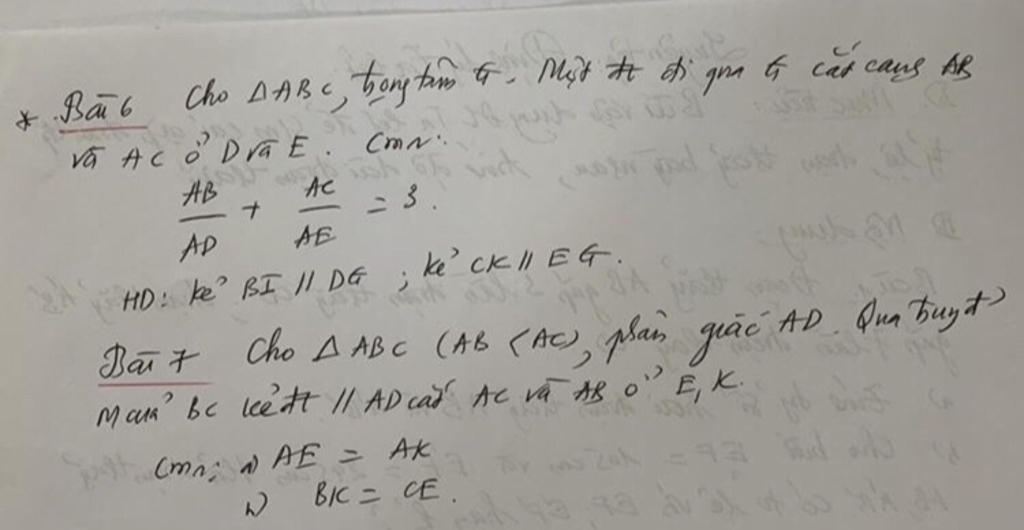 * Bài 6 Cho ΔABC, trọng tâm G. Một đt đi qua G cắt cạnh AB
và AC ở D và E. Cmr:
AB/AD + AC/AE = 3.
HD: kẻ BI // DG ; kẻ CK // EG.
Bài 7 Cho Δ ABC (AB < AC), phân giác AD. Qua trung đ'
M của BC kẻ đt // AD cắt AC và AB ở E, K.
Cmr: a) AE = AK
b) BK = CE.